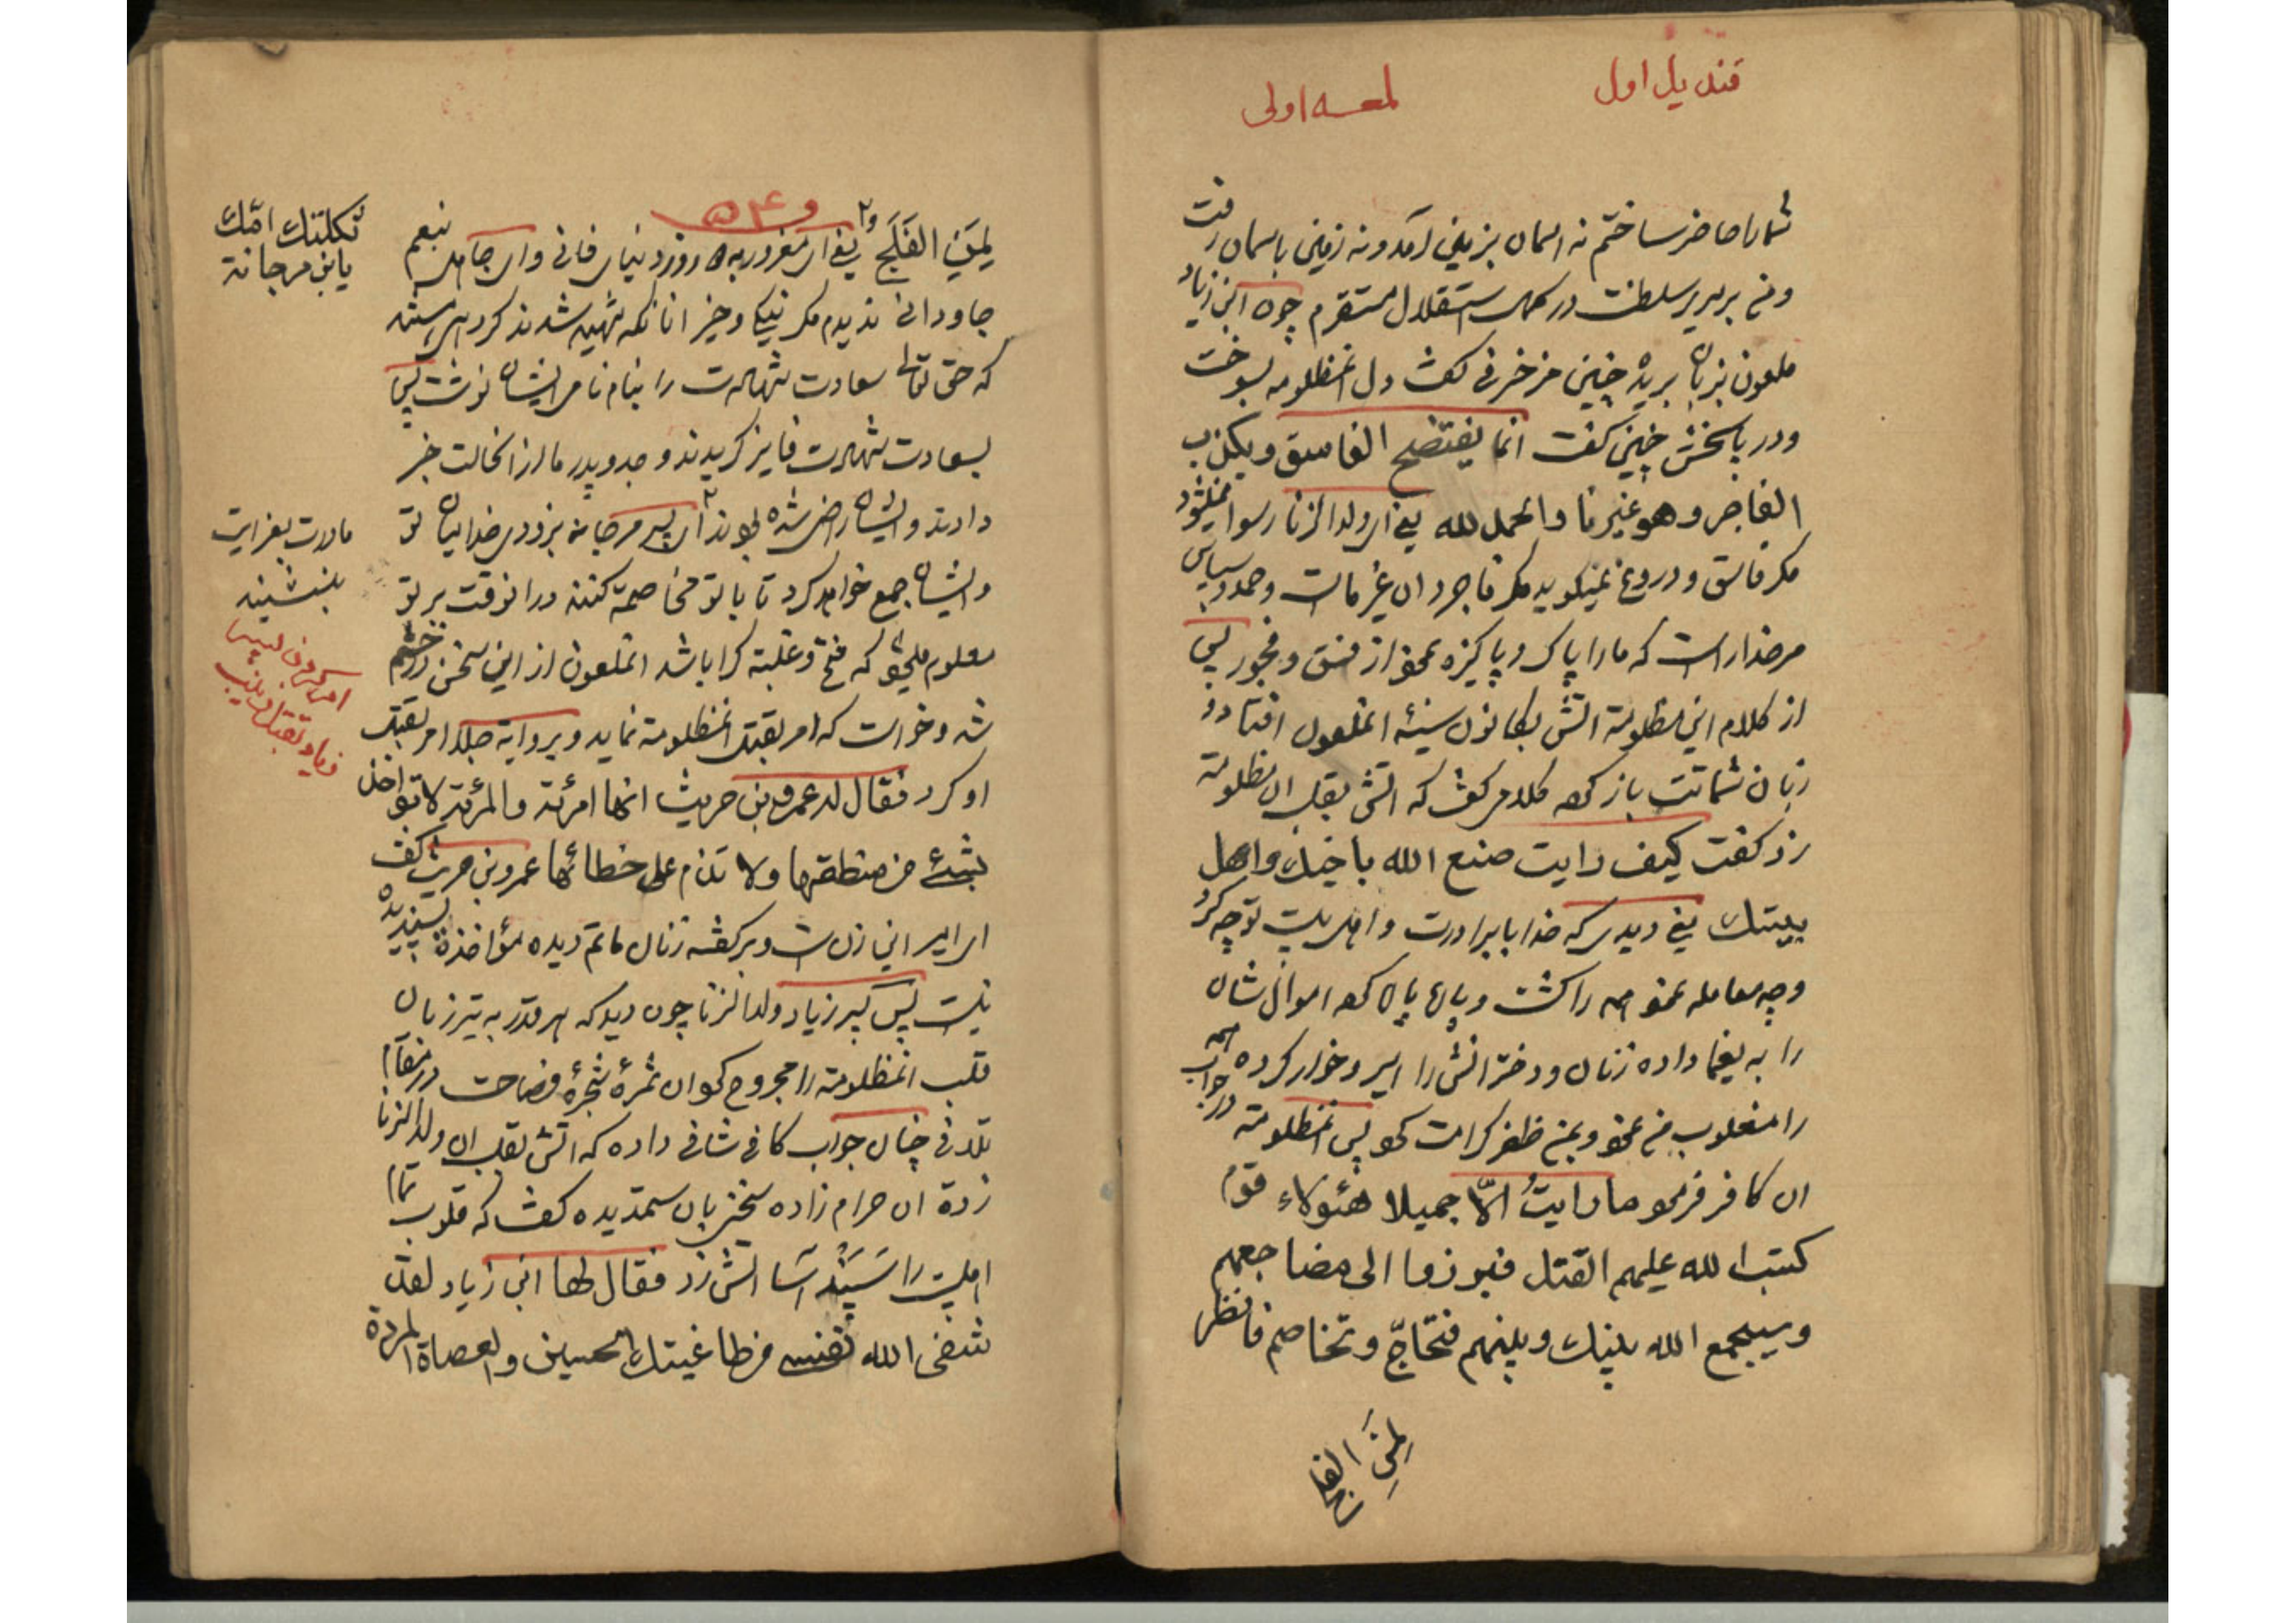 قندیل اول
لمعه اولی
شمارا حاضر ساختم نه اسمان بزمین آمد و نه زمین باسمان رفت
و من بر سریر سلطنت در کمال استقلال مستقرم چون ابن زیاد
ملعون بزبان بریده چنین مزخرفی گفت دل انمظلومه بسوخت
و در پاسخش چنین گفت انما یفتضح الفاسق ویکذب
الفاجر وهو غیرنا والحمد لله یعنی ای ولدالزنا رسوا نمیشود
مگر فاسق و دروغ نمیگوید مگر فاجر و ان غیر ماست و حمد و سپاس
مر خدا راست که ما را پاک و پاکیزه نمود از فسق و فجور پس
از کلام این مظلومة اتش بکانون سینهٔ انملعون افتاد و
زبان شماتت باز کرد کلامی گفت که اتش بقلب ان مظلومة
زد گفت کیف رایت صنع الله باخیك واهل
بیتك یعنی دیدی که خدا با برادرت و اهل بیت تو چه کرد
و چه معامله نمود همه را کشت و اموال شان
را به یغما داده زنان و دخترانش را اسیر و خوار کرده همه
را مغلوب من نمود و بمن ظفر کرامت کرد پس انمظلومة در جواب
ان کافر فرمود ما رایتُ الّا جمیلا هٰئولاء قومٌ
کتب الله علیهم القتل فبرزوا الی مضاجعهم
وسیجمع الله بینك وبینهم فتحاجّ وتخاصم فانظر
لِمَنِ الفلج
لِمَنِ الفَلَجُ یعنی ای مغرور به ۵ روز دنیای فانی و ای جاهل بنعیم
جاودانی ندیدم مگر نیکی و خیر انانکه شهید شدند گروهی هستند
که حق تعالی سعادت شهادت را بنام نامی ایشان نوشت پس
بسعادت شهادت فایز گردیدند و جد و پدر ما را از انحالت خبر
دادند و ایشان راضی شده بودند ای پسر مرجانه بزودی خدا میان تو
و ایشان جمع خواهد کرد تا با تو مخاصمة کنند در انوقت بر تو
معلوم میشود که فتح و غلبة کرا باشد انملعون از این سخن در خشم
شد و خواست که امر بقتل انمظلومة نماید و بروایة جلد امر بقتل
او کرد فقال له عمرو بن حریث انها امرئة والمرئة لا تؤاخذ
بشئ من منطقها ولا تذم علی خطائها عمرو بن حریث گفت
ای امیر این زن است و بر گفتهٔ زنان ماتم دیده مؤاخذة پسندیده
نیست پس پسر زیاد ولدالزنا چون دید که هر قدر به تیر زبان
قلب انمظلومة را مجروح کرد ان ثمرهٔ شجرهٔ فصاحت در مقام
تلافی چنان جواب کافی شافی داده که اتش بقلب ان ولدالزنا
زدة ان حرام زاده سخنی بان ستمدیده گفت که قلوب تمام
اهلبیت را سَپَنْد آسا اتش زد فقال لها ابن زیاد لقد
شفی الله نفسی من طاغیتك الحسین والعصاة المردة
ثکلتك امّك
یابن مرجانة
مادرت بعزایت
بنشیند
امر کردن پسر
زیاد بقتل زینب